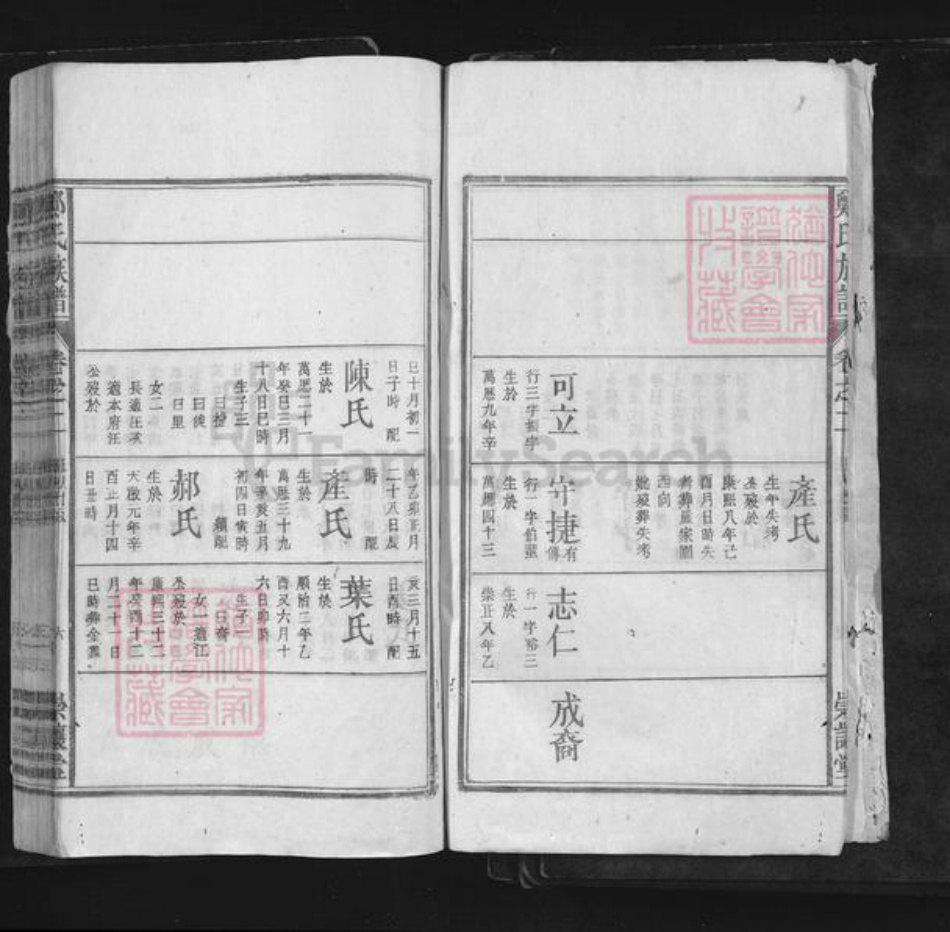 鄭氏族譜
卷之二
崇讓堂
產氏
生年失考
公歿於
康熙八年己
酉月日時失
考葬嚴家園
西向
妣歿葬失考
可立
行三字振宇
生於
萬曆九年辛
守捷
有傳
行一字伯藍
生於
萬曆四十三
志仁
行一字裕三
生於
崇正八年乙
成裔
巳十月初一
日子時 配
陳氏
生於
萬曆二十一
年癸巳三月
十八日巳時
生子三
曰捷
曰里
女二
長適汪
適本府汪
公歿於
年乙卯正月
二十八日辰
時 配
產氏
生於
萬曆三十九
年辛亥五月
初四日寅時
續配
郝氏
生於
天啟元年辛
酉正月十四
日丑時
亥三月十五
日酉時 配
葉氏
生於
順治二年乙
酉又六月十
六日卯時
生子一
成裔
女一適江
公歿於
康熙三十二
年癸酉十二
月二十一日
巳時葬金
鄭氏族譜
卷之二
六
崇讓堂
譜學會
收藏
FamilySearch